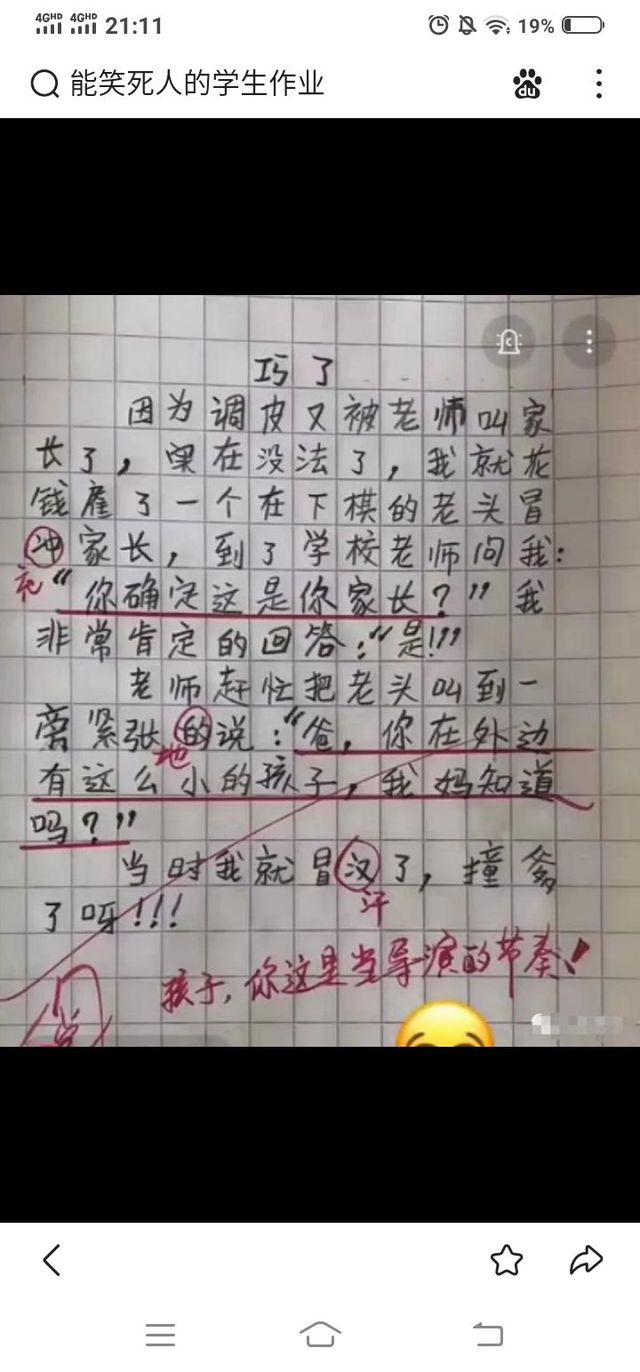 4GHD 4GHD 21:11 19%
能笑死人的学生作业
du
巧了
因为调皮又被老师叫家
长了，果在没法了，我就花
钱雇了一个在下棋的老头冒
冲家长，到了学校老师问我：
充
“你确定这是你家长？”我
非常肯定的回答：“是!!!”
老师赶忙把老头叫到一
旁紧张的说：“爸，你在外边
地
有这么小的孩子，我妈知道
吗？”
当时我就冒汉了，撞爹
汗
了呀!!!
孩子，你这是当导演的节奏！